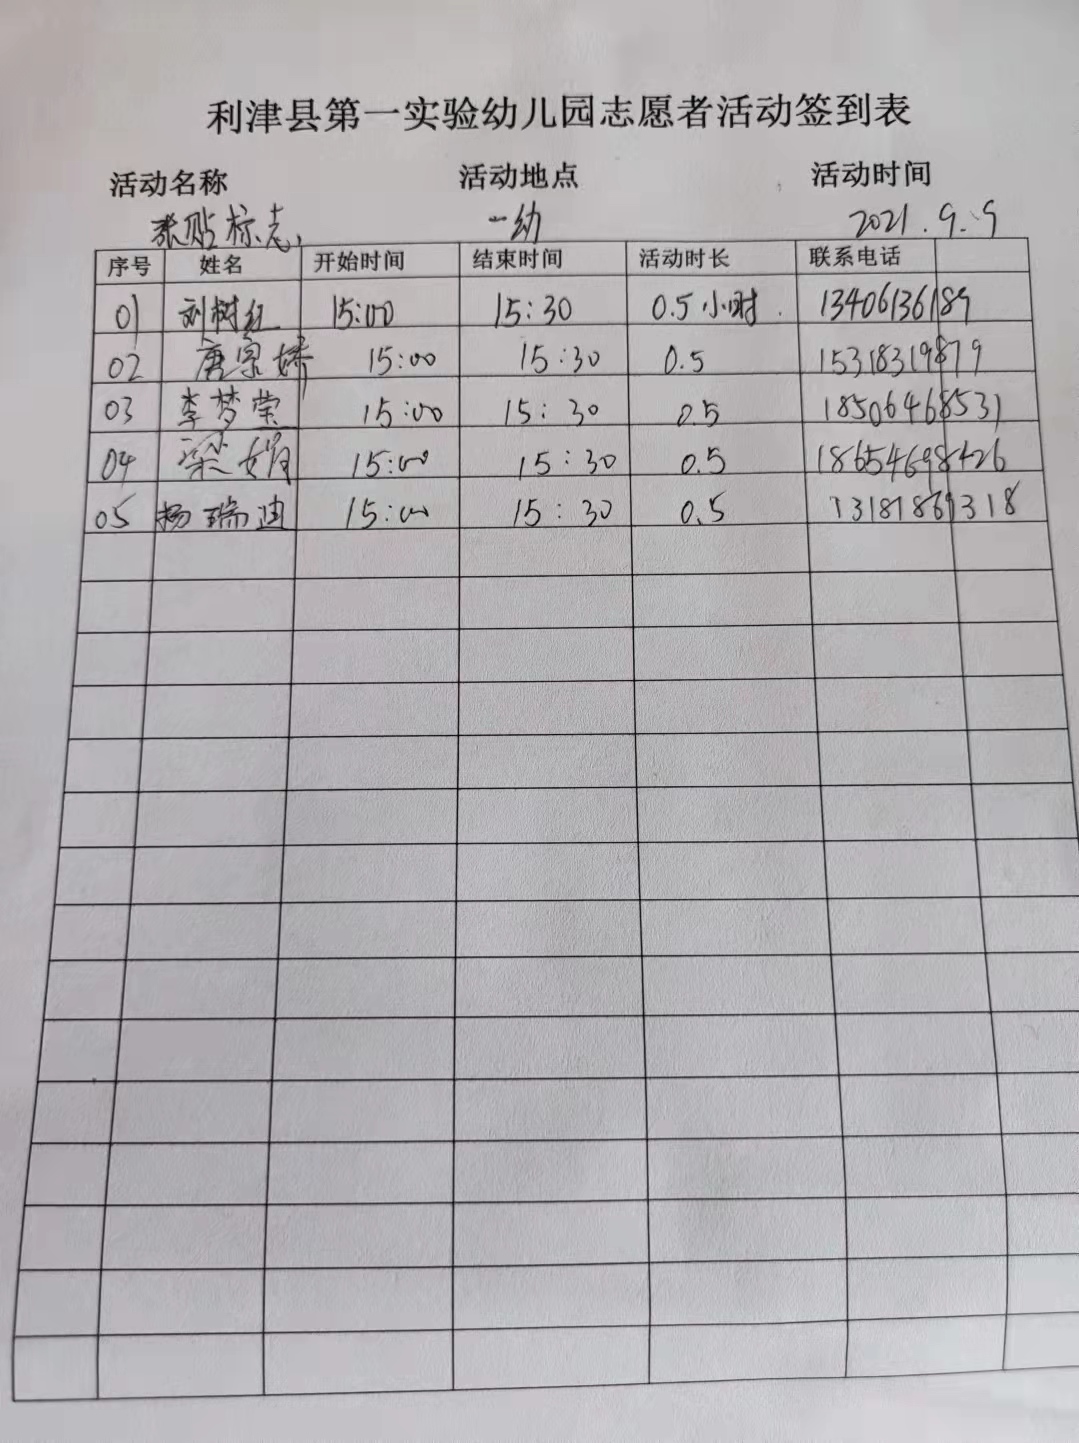 利津县第一实验幼儿园志愿者活动签到表
活动名称 活动地点 活动时间
张贴标志 一幼 2021.9.9
序号 姓名 开始时间 结束时间 活动时长 联系电话
01 刘树红 15:00 15:30 0.5小时 13406136189
02 唐宗 15:00 15:30 0.5 15318319879
03 李梦莹 15:00 15:30 0.5 18506468531
04 梁娟 15:00 15:30 0.5 18654698426
05 杨瑞迪 15:00 15:30 0.5 13181869318